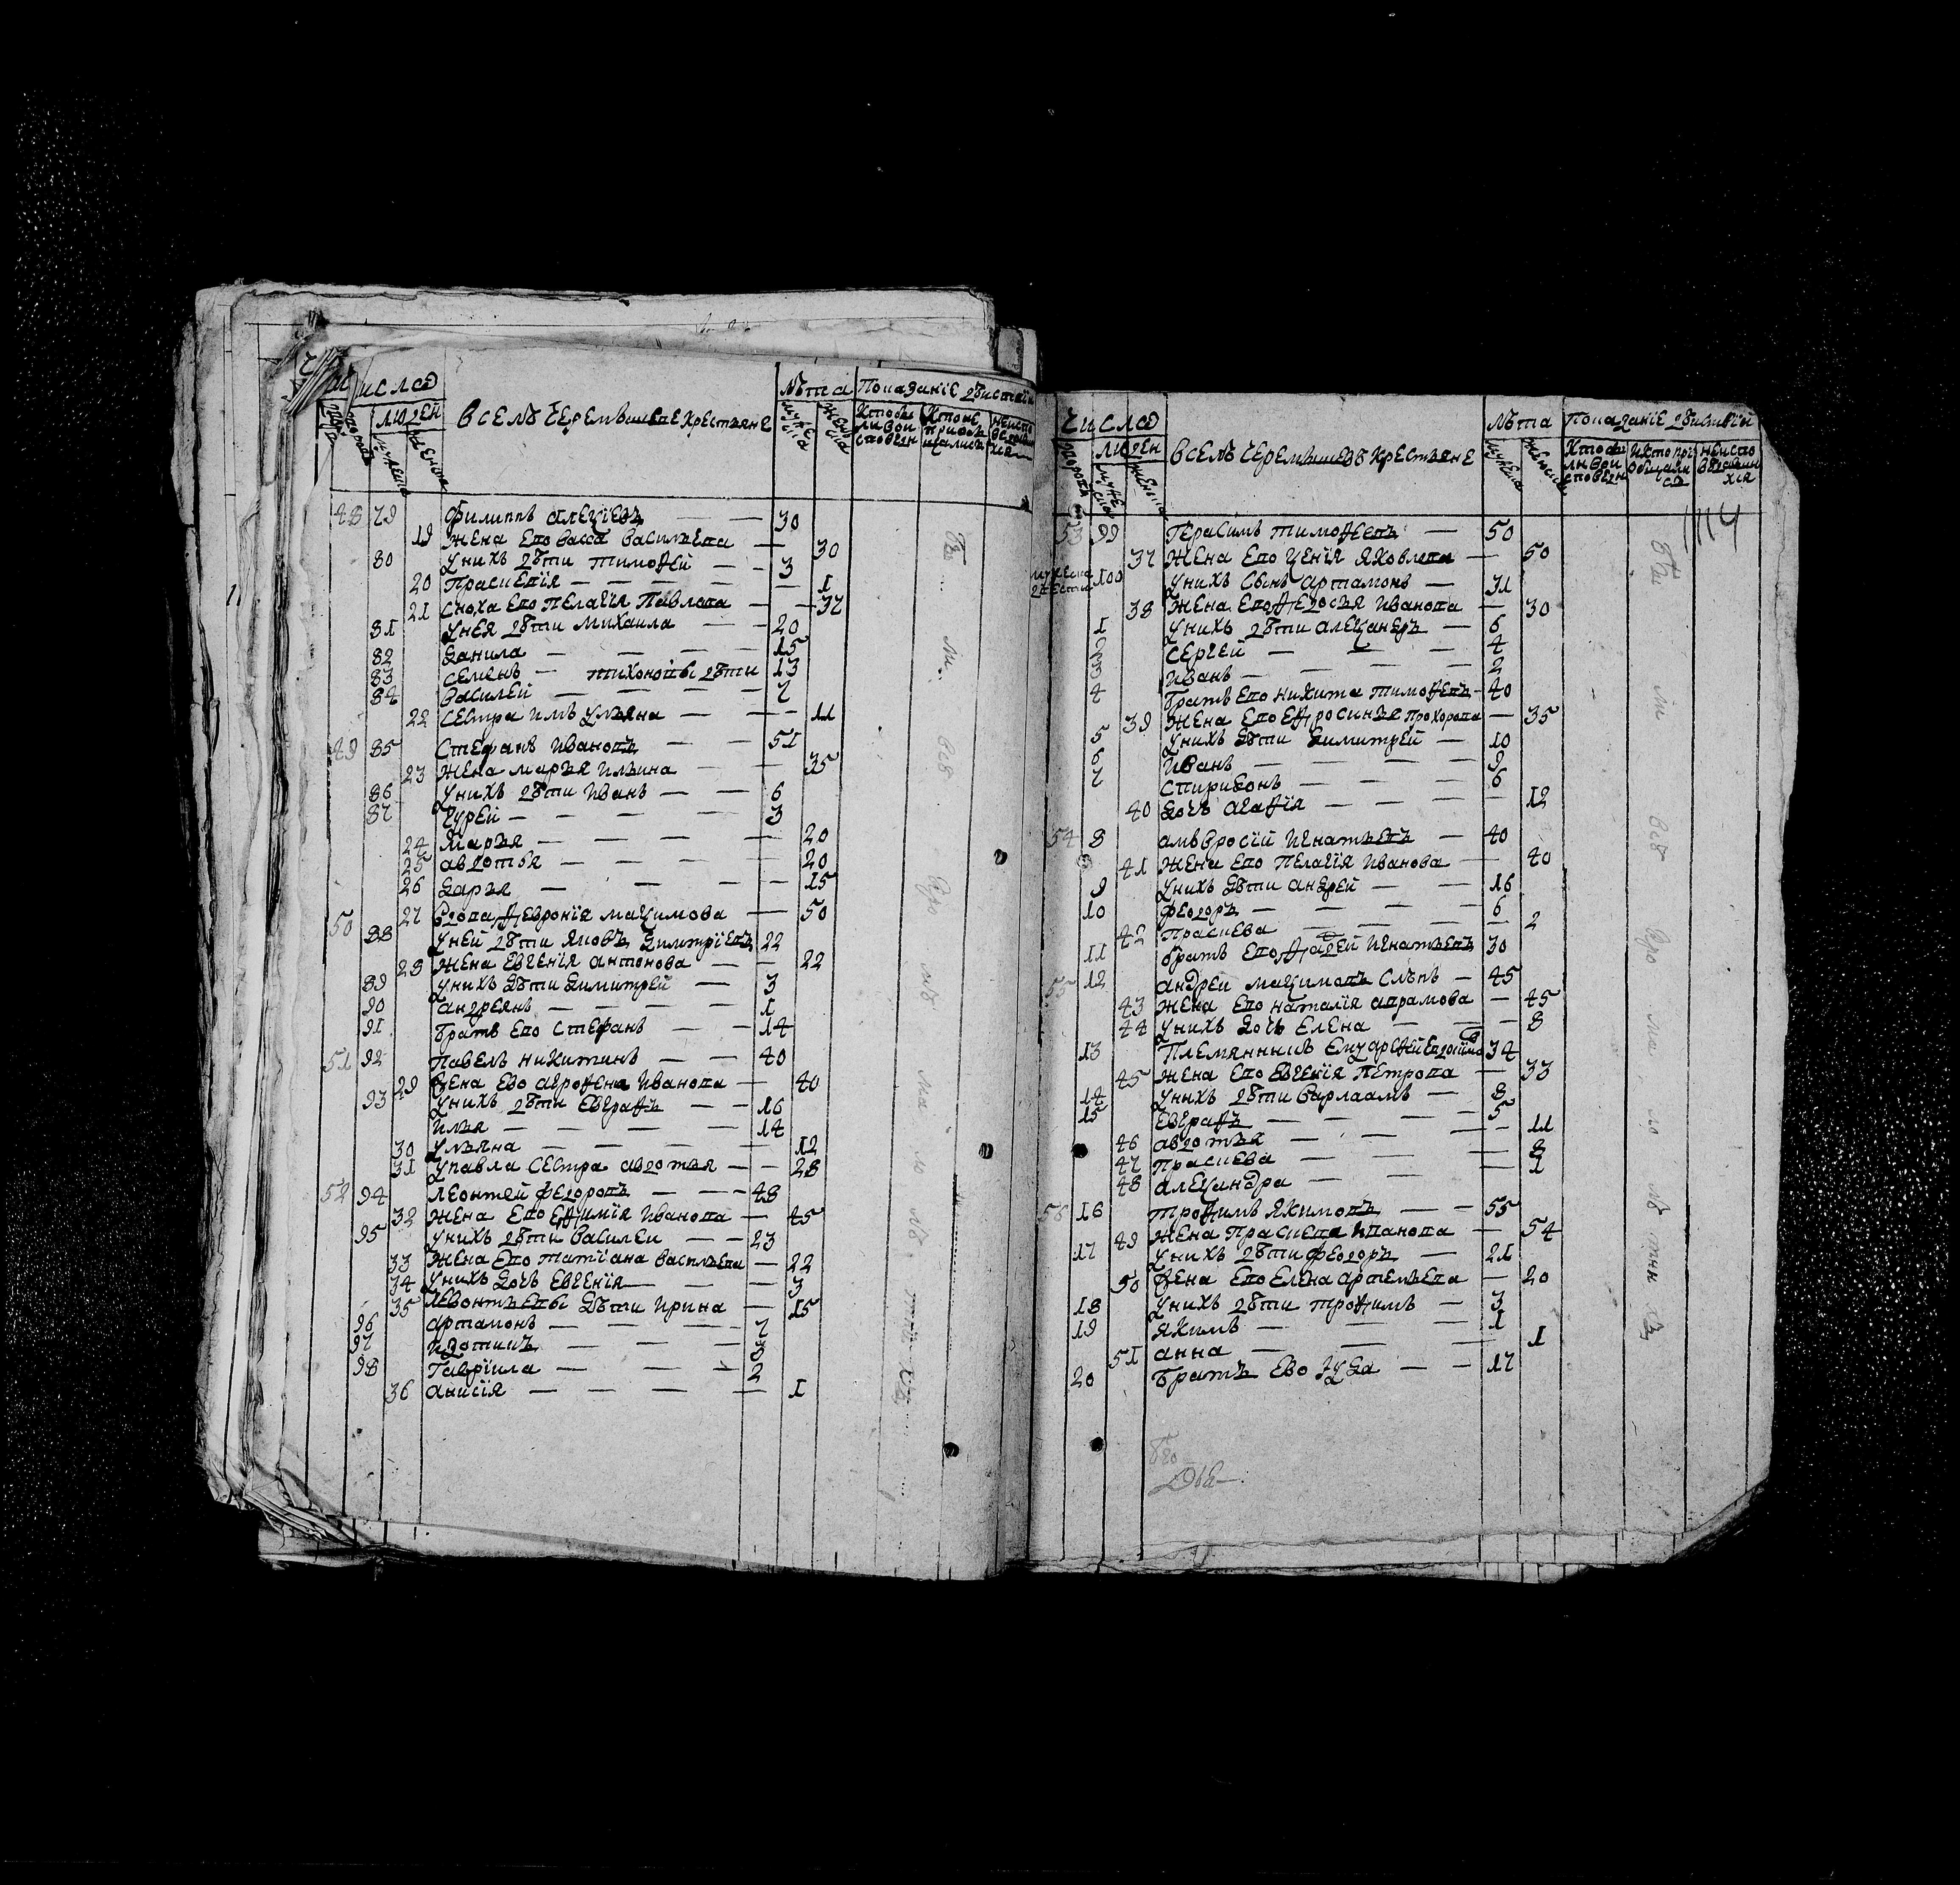 Числѡ
людеи
Всемъ черемъшеве Хрестъяне
Лѣта
Показанїе дѣиствїи
48 79 Филиппъ Алеѯѣевъ — — 30
19 Жена ево Васса Васильева — 30
80 У нихъ дѣти Тимофей — — 3
20 Праскевїя — — — — — 1
21 Сноха ево Пелагїя Павлова — — 37
81 У нея дѣти Михаила — — 20
82 Данила — — — — 15
83 Семенъ — Тихоновы дѣти 13
84 Василей — — — — 7
22 Сестра имъ Ульяна — — — 11
49 85 Стефанъ Ивановъ — — 51
23 Жена Марья Ильина — — 35
86 У нихъ дѣти Иванъ — — 6
87 Гурей — — — — 3
24 Марья — — — — 20
25 Авдотья — — — — 20
26 Дарья — — — — 15
50 27 Вдова Февронїя Маѯимова — 50
88 У ней дѣти Яковъ Димитрїевъ 22
28 Жена Евгенїя Антонова — — 22
89 У нихъ дѣти Димитрей — 3
90 Андреянъ — — — — 1
91 Братъ ево Стефанъ — — 14
51 92 Павелъ Никитинъ — — 40
29 Жена ево Агрофена Иванова — 40
93 У нихъ дѣти Евграфъ — — 16
Илья — — — — 14
30 Ульяна — — — — 12
31 У Павла сестра Авдотья — — 28
52 94 Леонтей Федоровъ — — — 48
32 Жена ево Ефимїя Иванова — 45
95 У нихъ дѣти Василеи — — 23
33 Жена ево Татїана Васильева — 22
34 У нихъ дочь Евгенїя — — 3
35 Левонтьевы дѣти Ирина — 15
96 Артамонъ — — — 7
97 Изотикъ — — — 3
98 Гаврїила — — — 2
36 Анисїя — — — — — 1
Числѡ
людеи
Всемъ черемъшевъ Хрестьяне
Лѣта
Показанїе дѣиствїи
114
53 99 Герасимъ Тимофеевъ — 50
37 Жена ево Ѯенїя Яковлева — 50
100 У нихъ сынъ Артамонъ — 31
38 Жена ево Федосья Иванова — 30
1 У нихъ дѣти Алеѯандръ — 6
2 Сергей — — — 4
3 Иванъ — — — 2
4 Братъ ево Никита Тимофеевъ — 40
39 Жена ево Ефросинья Прохорова — 35
5 У нихъ дѣти Димитрей — 10
6 Иванъ — — — 9
7 Спиридонъ — — — 6
40 Дочь Агафїя — — — 12
54 8 Амвросїй Игнатьевъ — 40
41 Жена ево Пелагїя Иванова — 40
9 У нихъ дѣти Андрей — — 16
10 Феодоръ — — — — 6
42 Праскева — — — — 2
11 Братъ ево Фадей Игнатьевъ 30
55 12 Андреи Маѯимовъ слѣпъ — 45
43 Жена ево Наталїя Аврамова — 45
44 У нихъ дочь Елена — — — 8
13 Племянникъ ему Арефей 34
45 Жена ево Евгенїя Петрова — 33
14 У нихъ дѣти Варлаамъ — 8
15 Евграфъ — — — 5
46 Авдотья — — — 11
47 Праскева — — — 8
48 Алеѯандра — — — 1
56 16 Трофимъ Якимовъ — — 55
49 Жена Праскева Иванова — 54
17 У нихъ дѣти Феодоръ — 21
50 Жена ево Елена Артемьева — 20
18 У нихъ дѣти Трофимъ — 3
19 Якимъ — — — 1
51 Анна — — — 1
20 Братъ ево Іуда — — 17